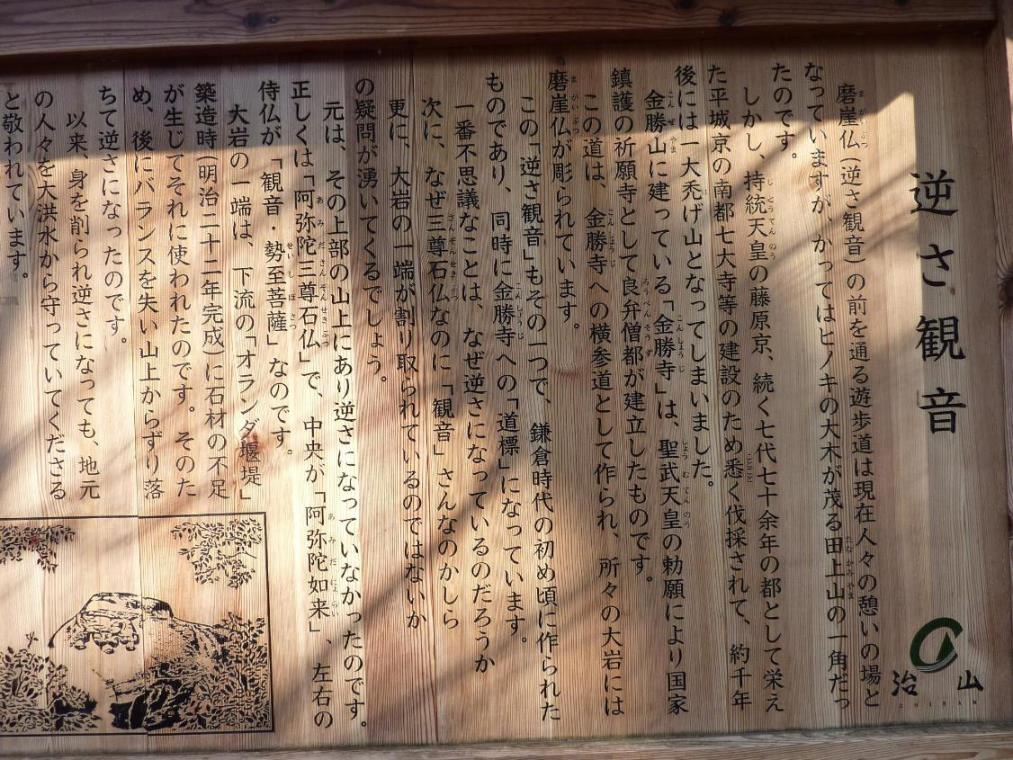 逆さ観音
磨崖仏(逆さ観音)の前を通る遊歩道は現在人々の憩いの場と
なっていますが、かつてはヒノキの大木が茂る田上山の一角だっ
たのです。
しかし、持統天皇の藤原京、続く七代七十余年の都として栄え
た平城京の南都七大寺等の建設のため悉く伐採されて、約千年
後には一大禿げ山となってしまいました。
金勝山に建っている「金勝寺」は、聖武天皇の勅願により国家
鎮護の祈願寺として良弁僧都が建立したものです。
この道は、金勝寺への横参道として作られ、所々の大岩には
磨崖仏が彫られています。
この「逆さ観音」もその一つで、鎌倉時代の初め頃に作られた
ものであり、同時に金勝寺への「道標」になっています。
一番不思議なことは、なぜ逆さになっているのだろうか
次に、なぜ三尊石仏なのに「観音」さんなのかしら
更に、大岩の一端が割り取られているのではないか
の疑問が湧いてくるでしょう。
元は、その上部の山上にあり逆さになっていなかったのです。
正しくは「阿弥陀三尊石仏」で、中央が「阿弥陀如来」、左右の
侍仏が「観音・勢至菩薩」なのです。
大岩の一端は、下流の「オランダ堰堤」
築造時(明治二十二年完成)に石材の不足
が生じてそれに使われたのです。そのた
め、後にバランスを失い山上からずり落
ちて逆さになったのです。
以来、身を削られ逆さになっても、地元
の人々を大洪水から守っていてくださる
と敬われています。
治山
CHISAN